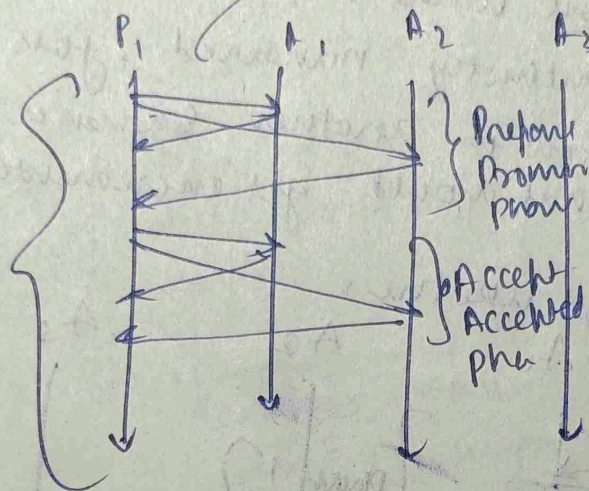 P1 A1 A2 A3
Prepare
Promise
phase
Accept
Accepted
pha